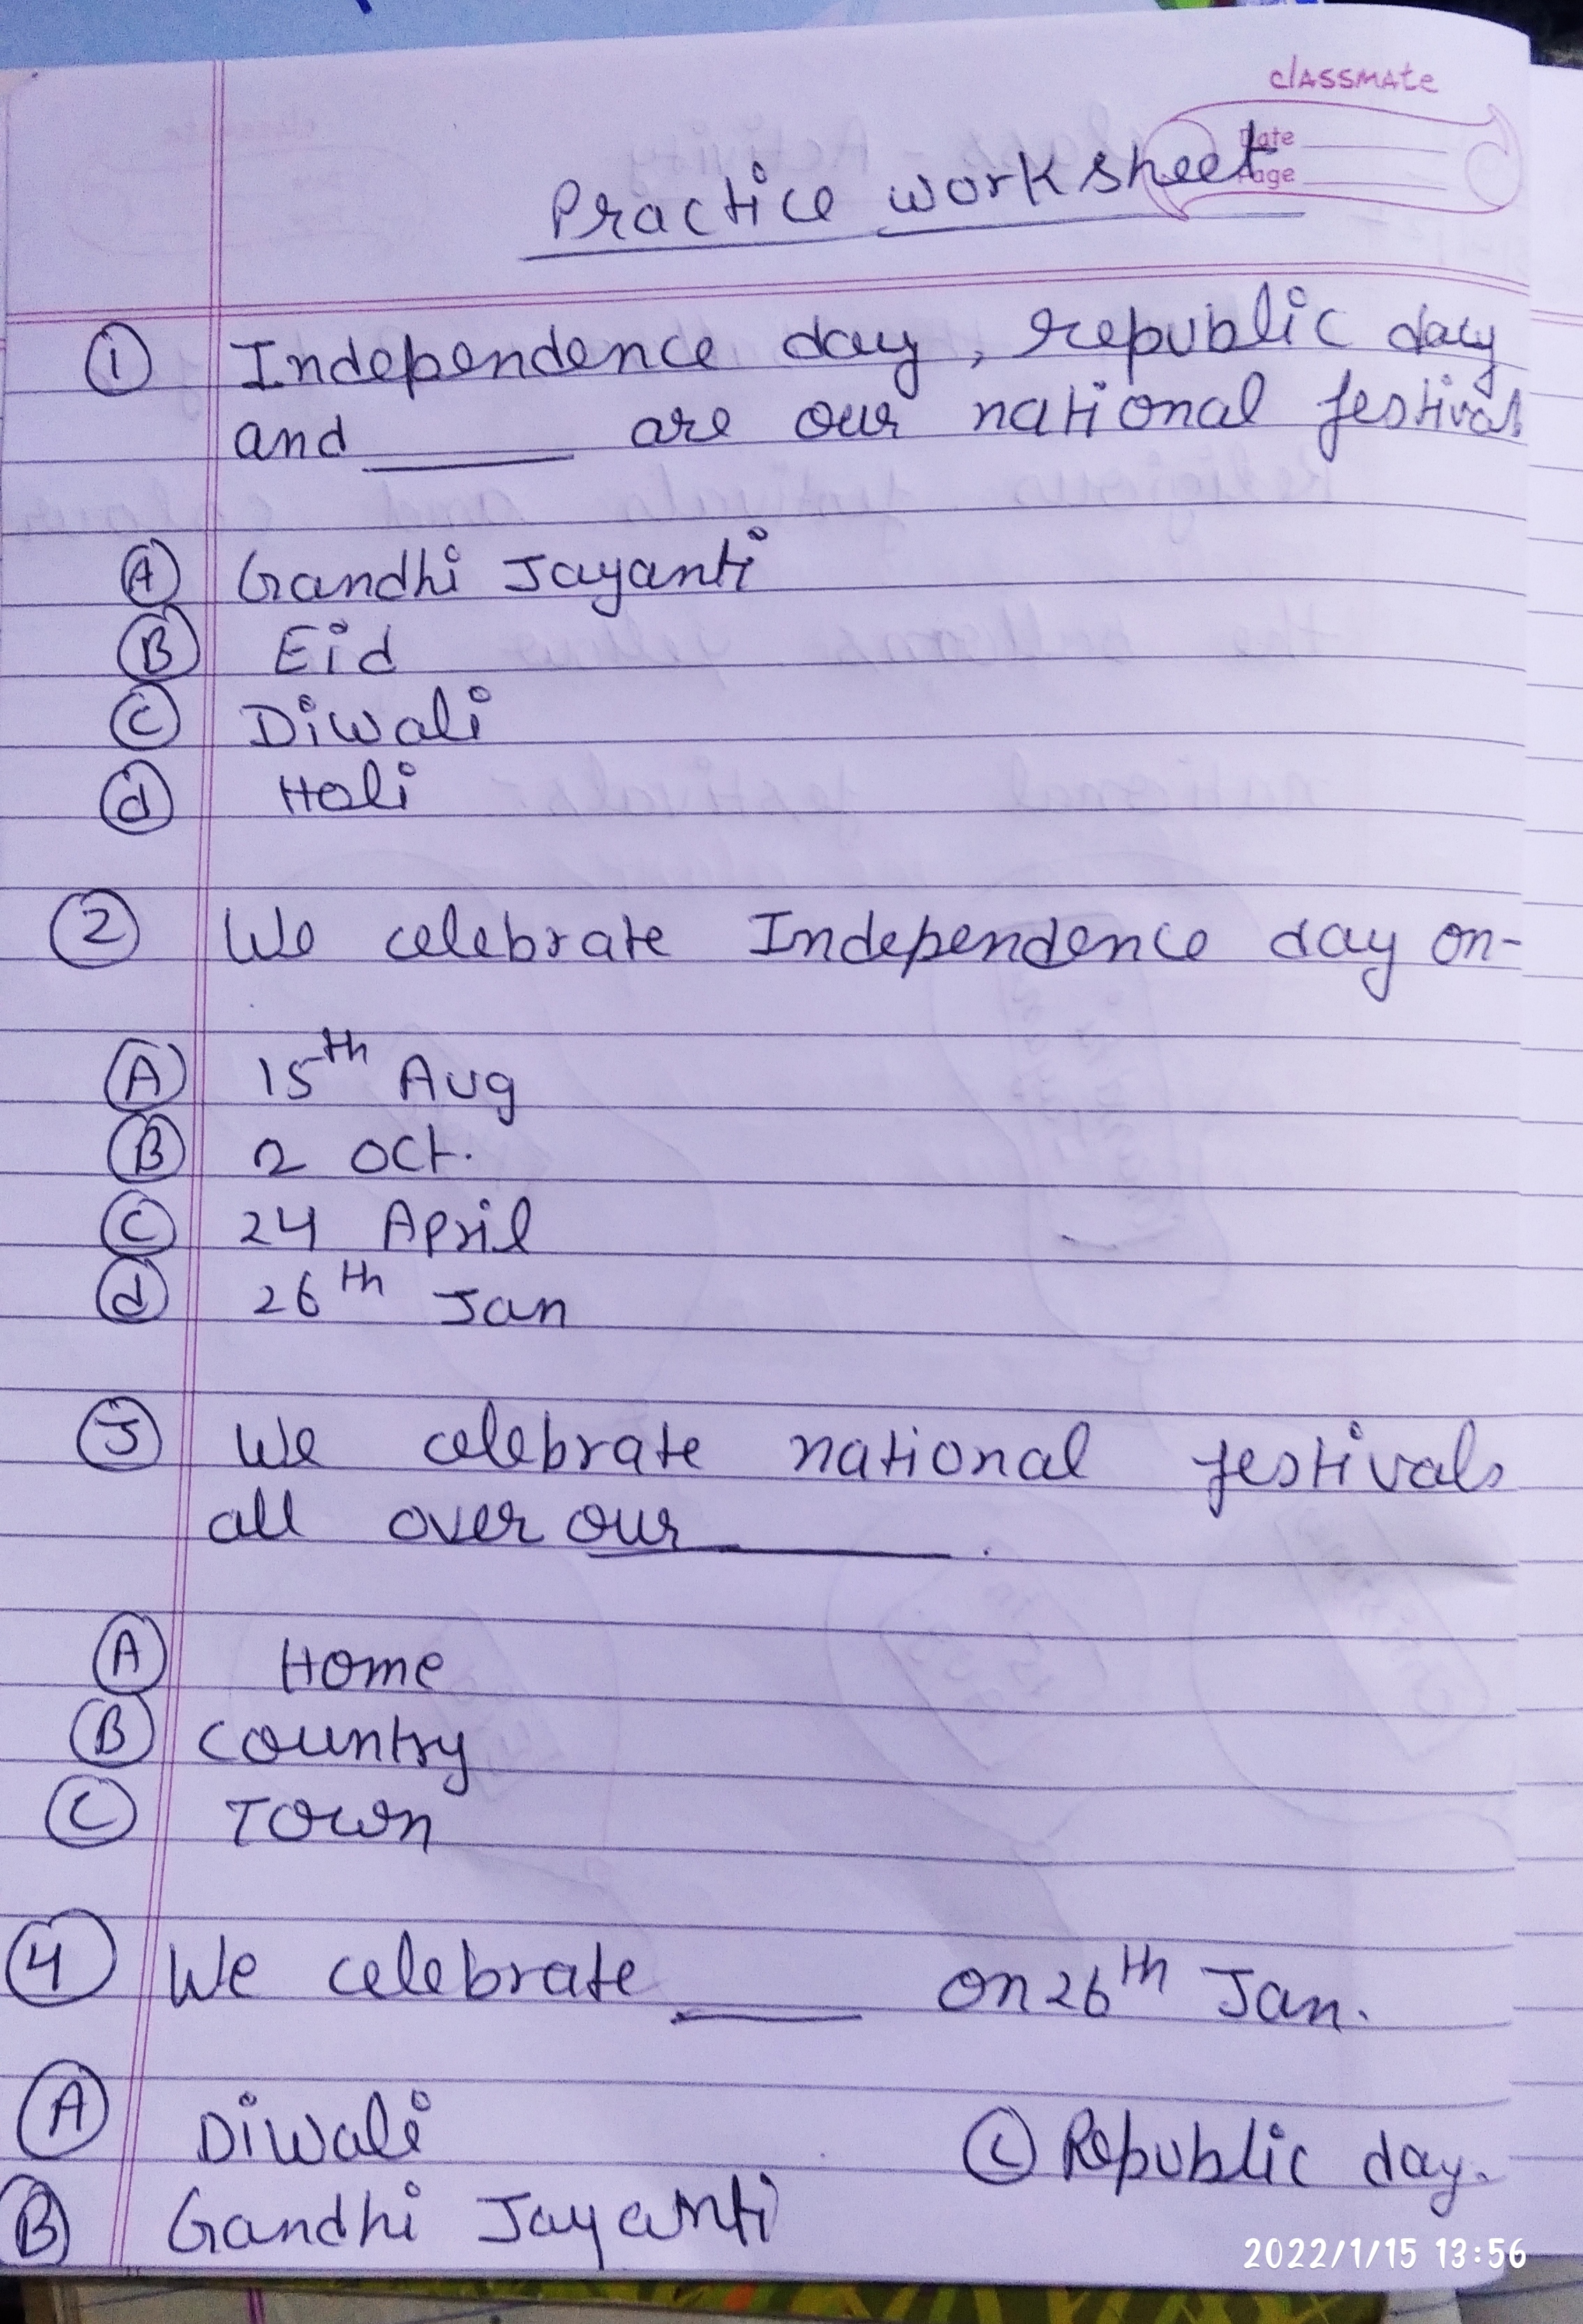 classmate
Date
Page
Practice worksheet
1 Independence day, republic day
and ______ are our national festivals
A Gandhi Jayanti
B Eid
C Diwali
d Holi
2 We celebrate Independence day on-
A 15th Aug
B 2 Oct.
C 24 April
d 26th Jan
3 We celebrate national festivals
all over our ______.
A Home
B Country
C Town
4 We celebrate ______ on 26th Jan.
A Diwali
C Republic day.
B Gandhi Jayanti
2022/1/15 13:56